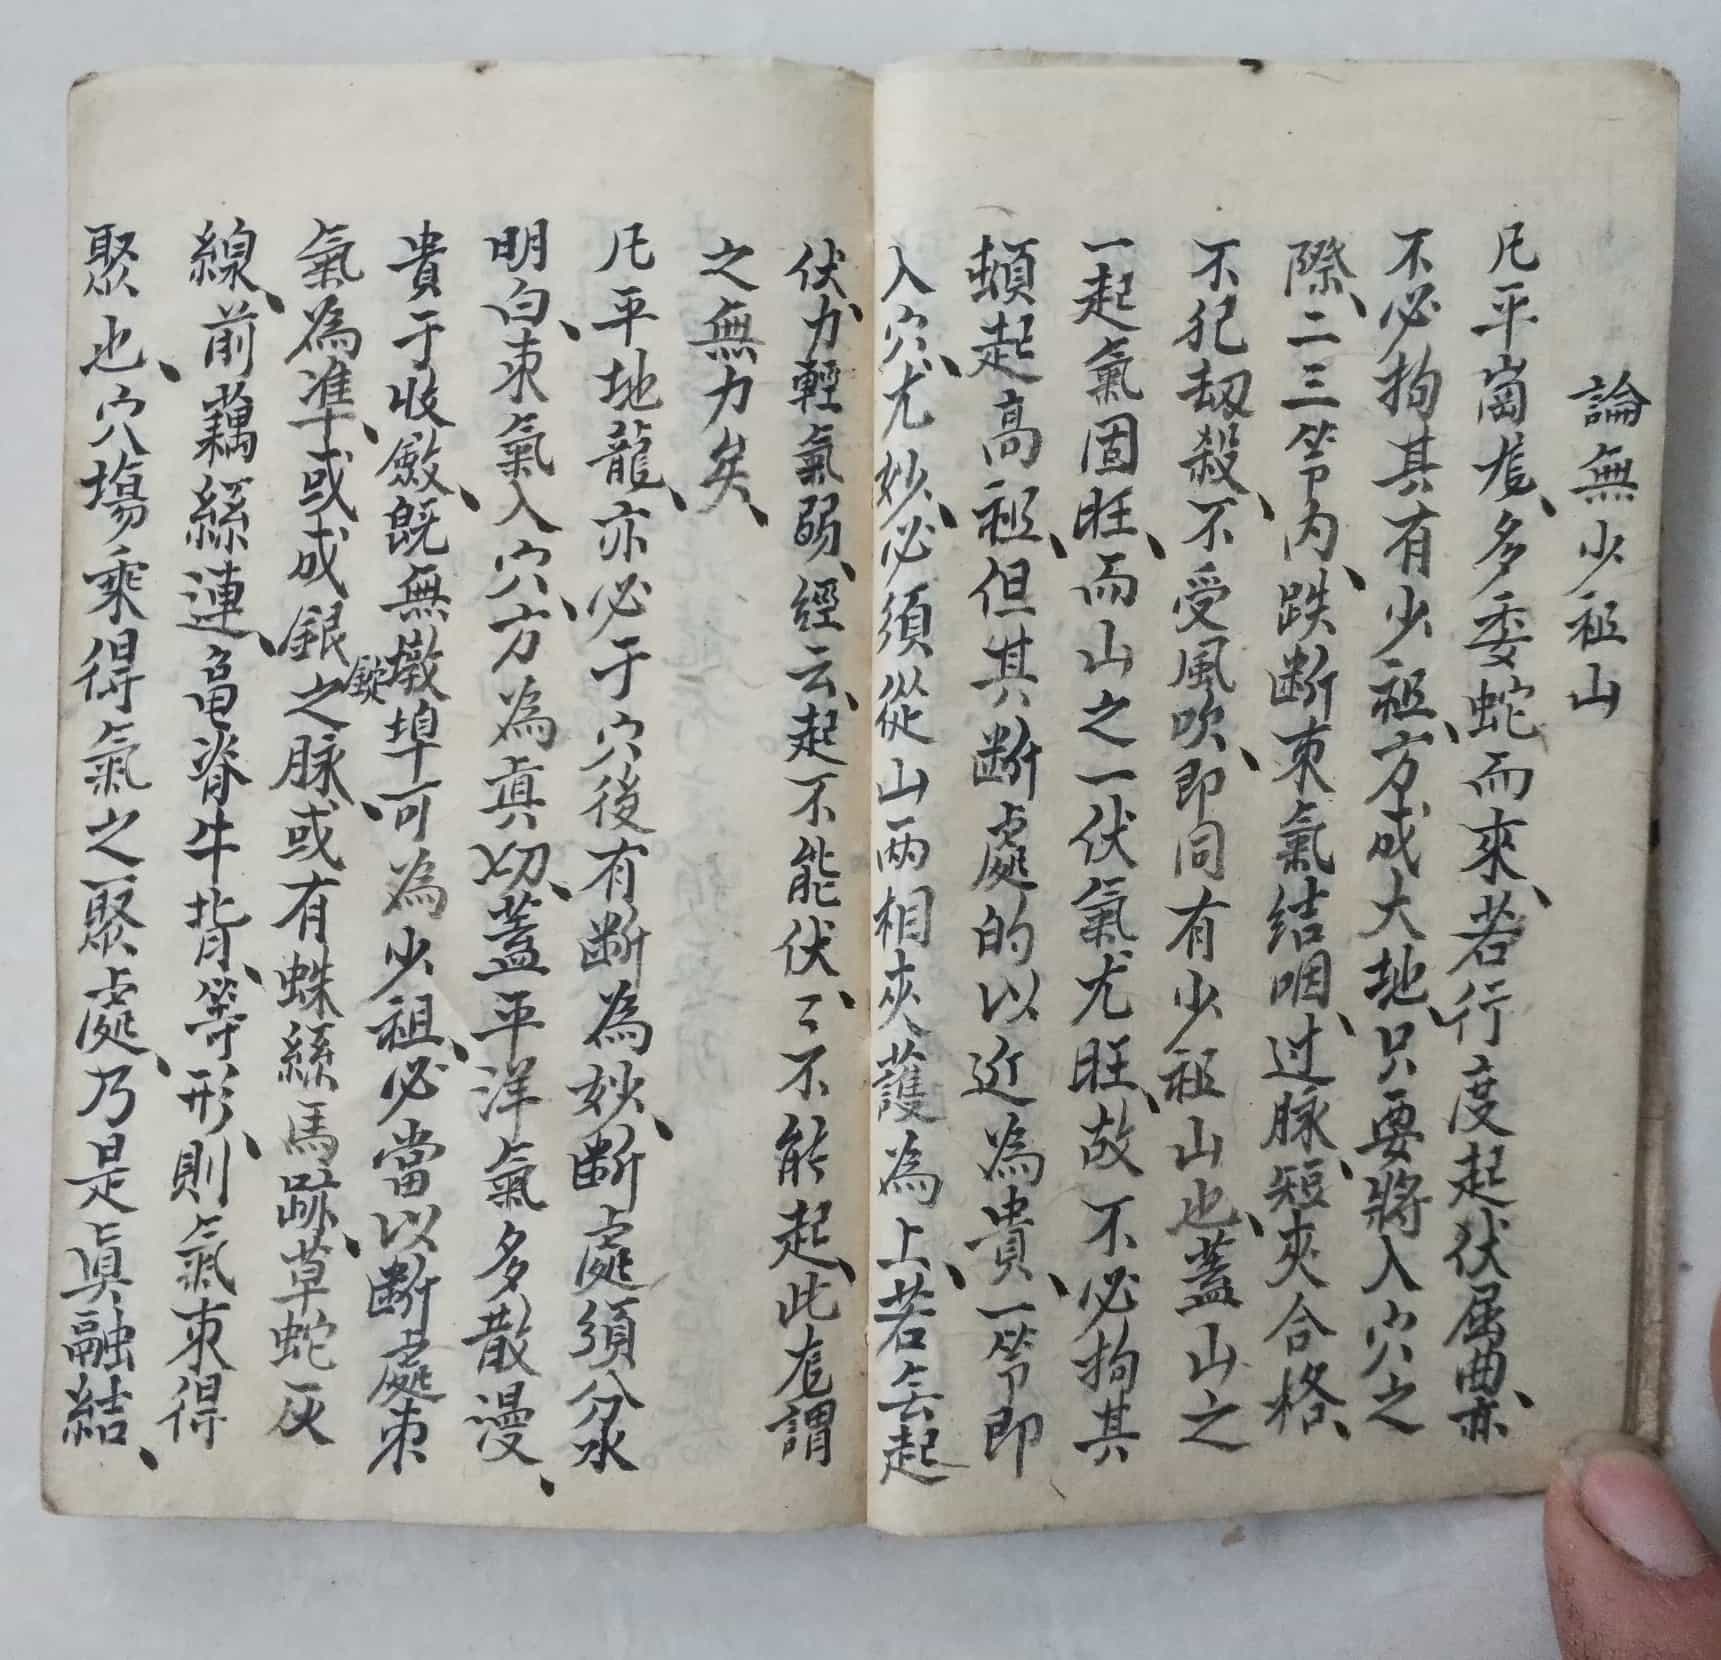 論無少祖山
凡平崗尨、多委蛇而來、若行度起伏屈曲、亦
不必拘其有少祖、方成大地、只要將入穴之
際、二三節内、跌断束氣结咽、过脉、短夾合格、
不犯劫殺、不受風吹、即同有少祖山也、蓋山之
一起氣固旺、而山之一伏氣尤旺、故不必拘其
頓起高祖、但其断處的以近為貴、一節即
入穴尤妙、必須從山兩相夾護為上、若去起
伏力輕氣弱、經云、起不能伏、〻不能起、此尨謂
之無力矣、
凡平地龍、亦必于穴後有断為妙、断處須分水
明白、束氣入穴、方為真切、蓋平洋氣多散漫、
貴于收斂、既無墩埠可為少祖、必當以断處束
氣為準、或成銀錠之脉、或有蛛絲馬跡、草蛇灰
線、前藕絲連、亀脊牛背、等形、則氣束得
聚也、穴塲乘得氣之聚處、乃是真融結、